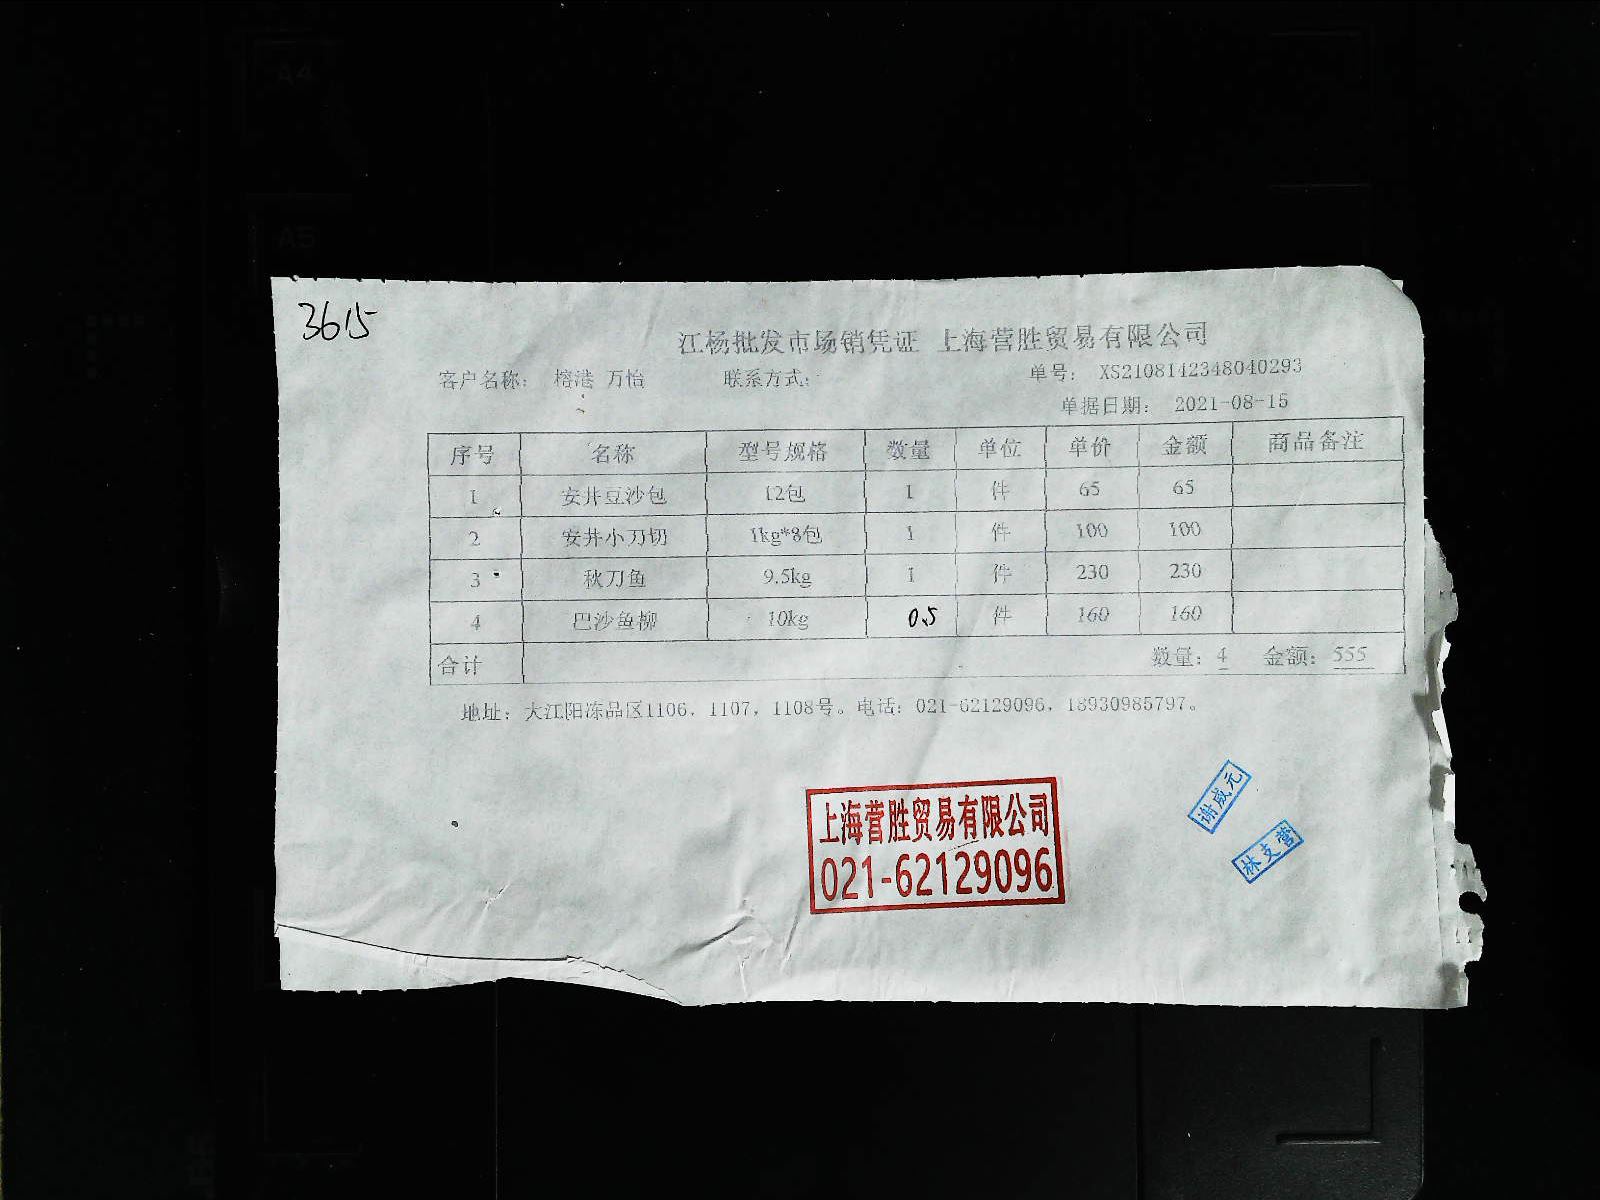 3615
江杨批发市场销凭证 上海营胜贸易有限公司
客户名称: 榕港 万怡 联系方式: 单号: XS2108142348040293
单据日期: 2021-08-15
序号 名称 型号规格 数量 单位 单价 金额 商品备注
1 安井豆沙包 12包 1 件 65 65
2 安井小刀切 1kg*8包 1 件 100 100
3 秋刀鱼 9.5kg 1 件 230 230
4 巴沙鱼柳 10kg 0.5 件 160 160
合计 数量: 4 金额: 555
地址: 大江阳冻品区1106, 1107, 1108号。电话: 021-62129096, 18930985797。
上海营胜贸易有限公司
021-62129096
谢成元
林支营
A4
A5